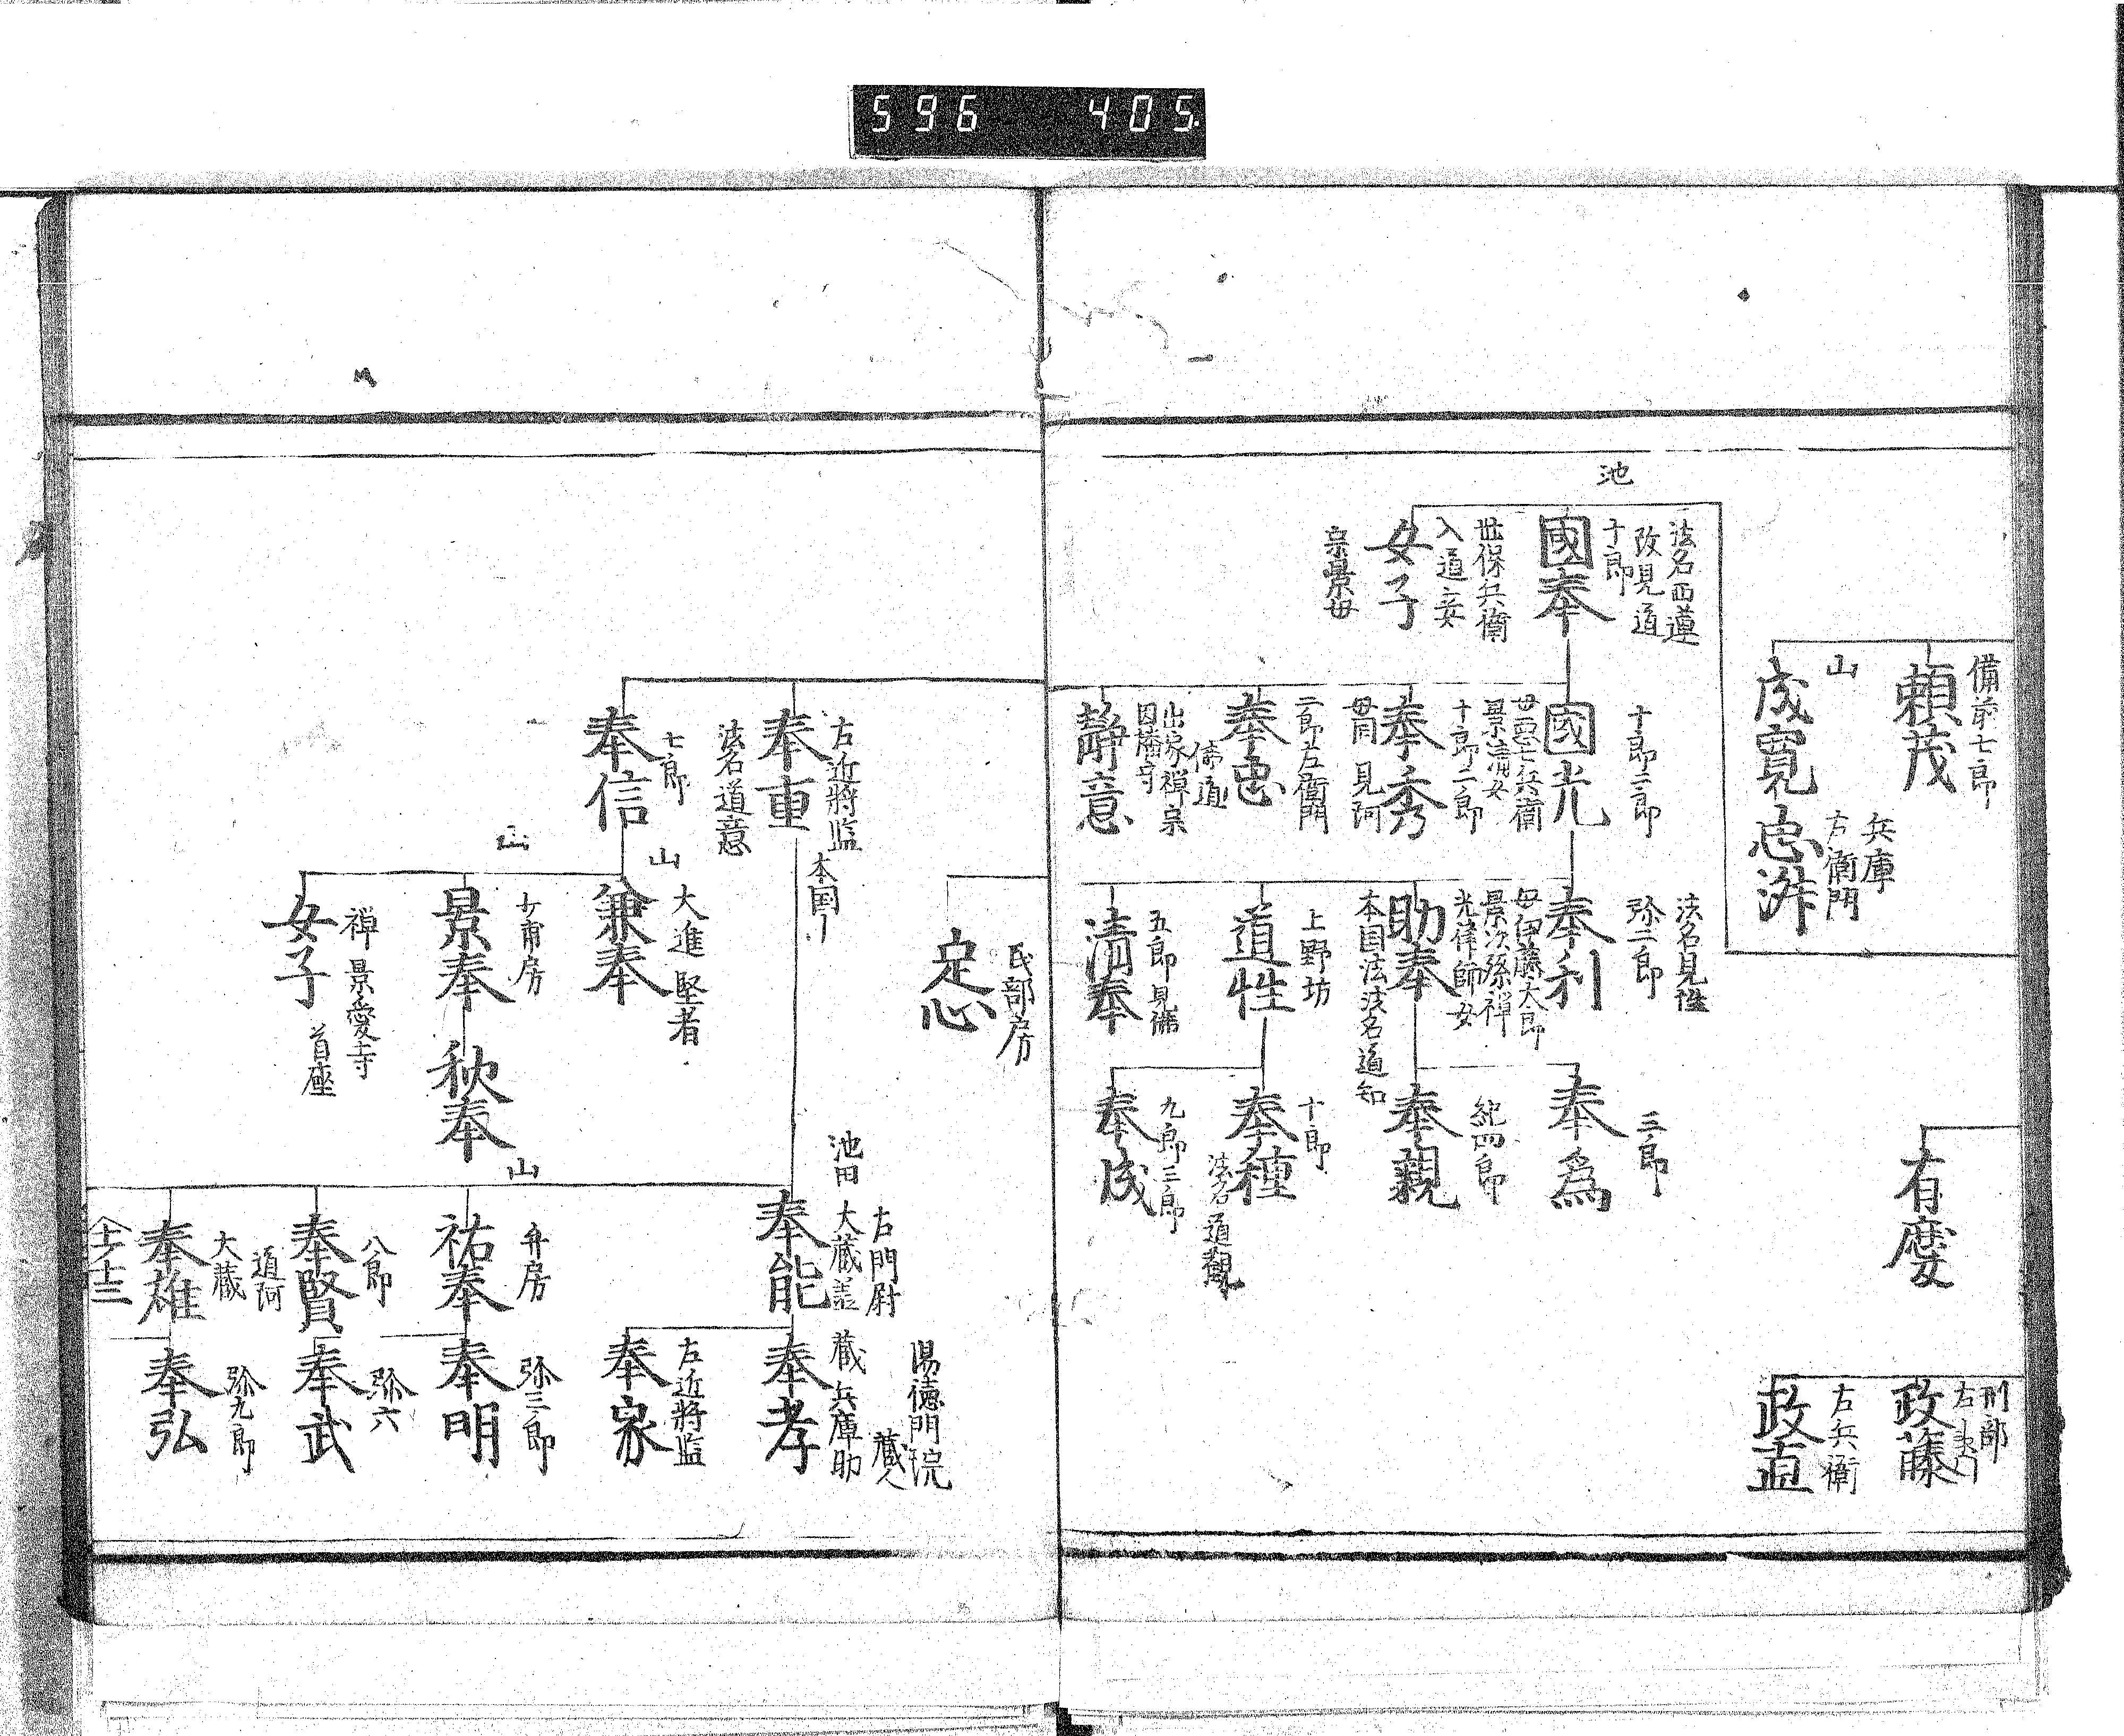 596 405
備前七郎
頼茂
山
成寛
兵庫
右衛門
有慶
刑部
政藤
右兵衛
政直
池
法名西蓮
改見道
十郎
國奉
世保兵衛
入道妾
女子
宗景母
十郎二郎
國光
景清女
十郎二郎
奉秀
母同 見阿
二郎左衛門
奉忠
出家禅宗
因幡守
静意
法名見性
弥二郎
奉利
母伊藤太郎
景次孫禅
光律師女
助奉
本国法法名道知
上野坊
道性
五郎見佛
清奉
三郎
奉為
紀四郎
奉親
十郎
奉種
法名道観
九郎三郎
奉成
民部房
定心
右近将監
奉重
法名道意
本国
七郎
奉信
山
大進 堅者
兼奉
山
景奉
禅 景愛寺
首座
女子
秋奉
山
池田
右門尉
奉能
弁房
祐奉
八郎
奉賢
道阿
大蔵
奉雄
陽徳門院
蔵人
蔵 兵庫助
奉孝
左近将監
奉家
弥三郎
奉明
弥六
奉武
弥九郎
奉弘